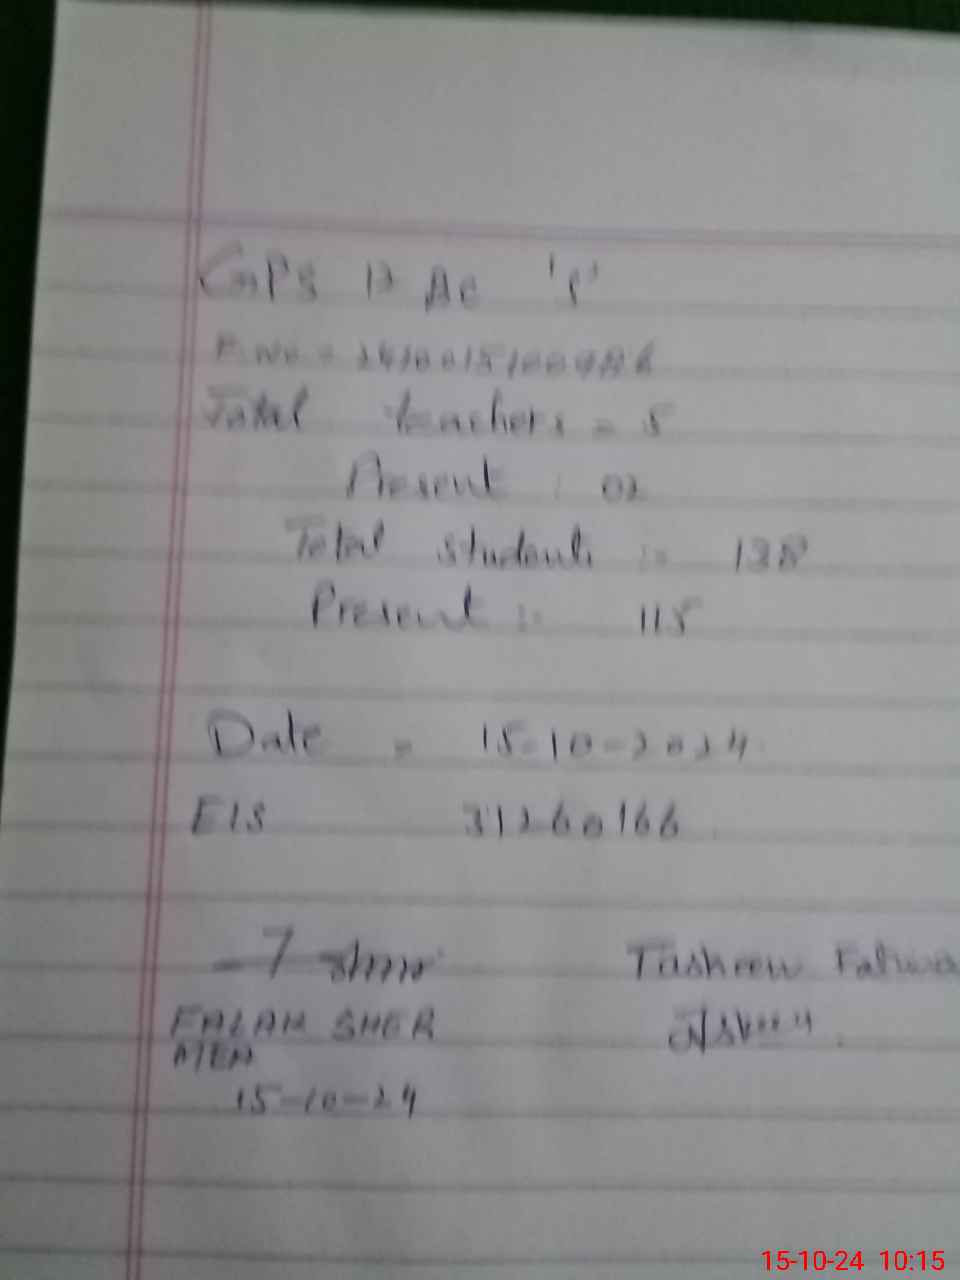 GPS 17 AC 'S'
Total teachers = 5
Present : 02
Total students :- 138
Present :- 115
Date = 15-10-2024
EIS 31260166
FALAK SHER Tasheen Fatima
MEA
15-10-24
15-10-24 10:15